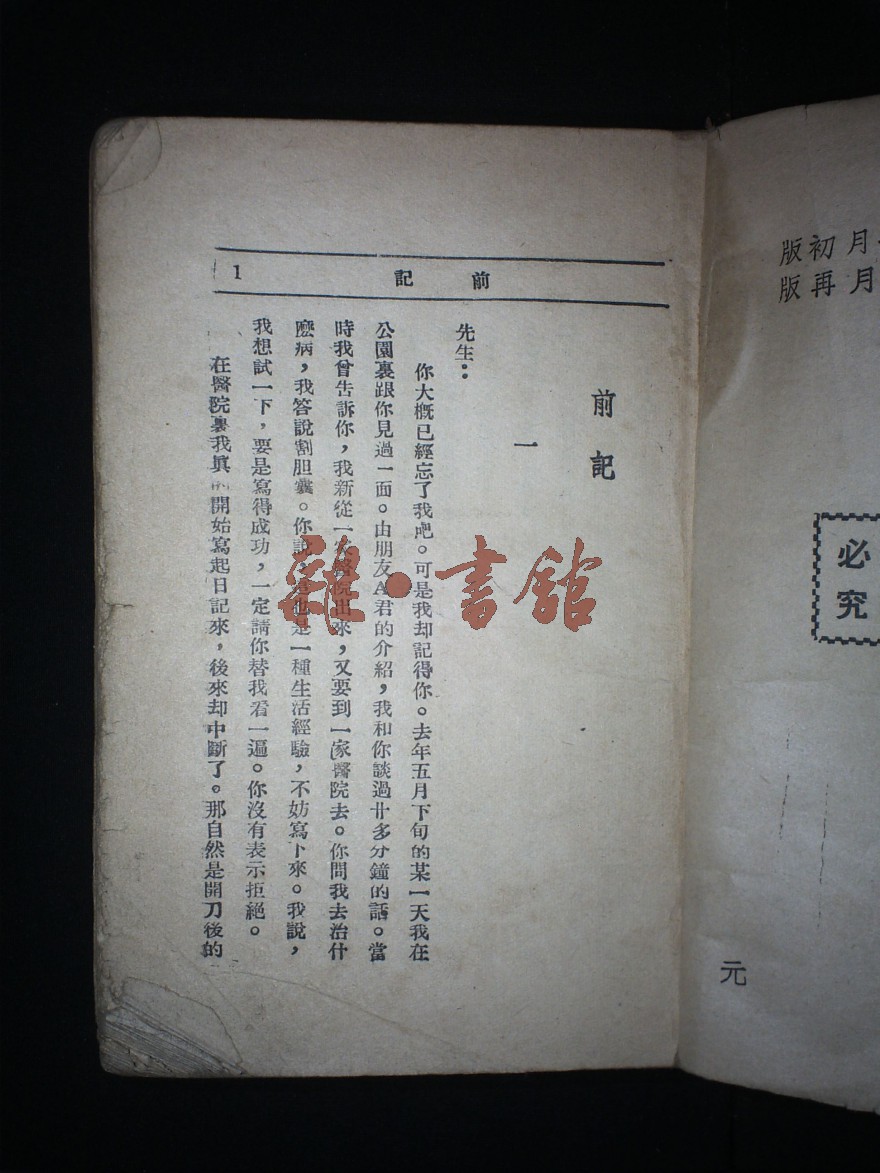 月初版
月再版
必究
元
前記 1
前記
一
先生：
你大槪已經忘了我吧。可是我却記得你。去年五月下旬的某一天我在
公園裏跟你見過一面。由朋友A君的介紹，我和你談過廿多分鐘的話。當
時我曾告訴你，我新從一家醫院出來，又要到一家醫院去。你問我去治什
麽病，我答說割胆囊。你說，這也是一種生活經驗，不妨寫下來。我說，
我想試一下，要是寫得成功，一定請你替我看一遍。你沒有表示拒絕。
在醫院裏我眞的開始寫起日記來，後來却中斷了。那自然是開刀後的
雜·書館